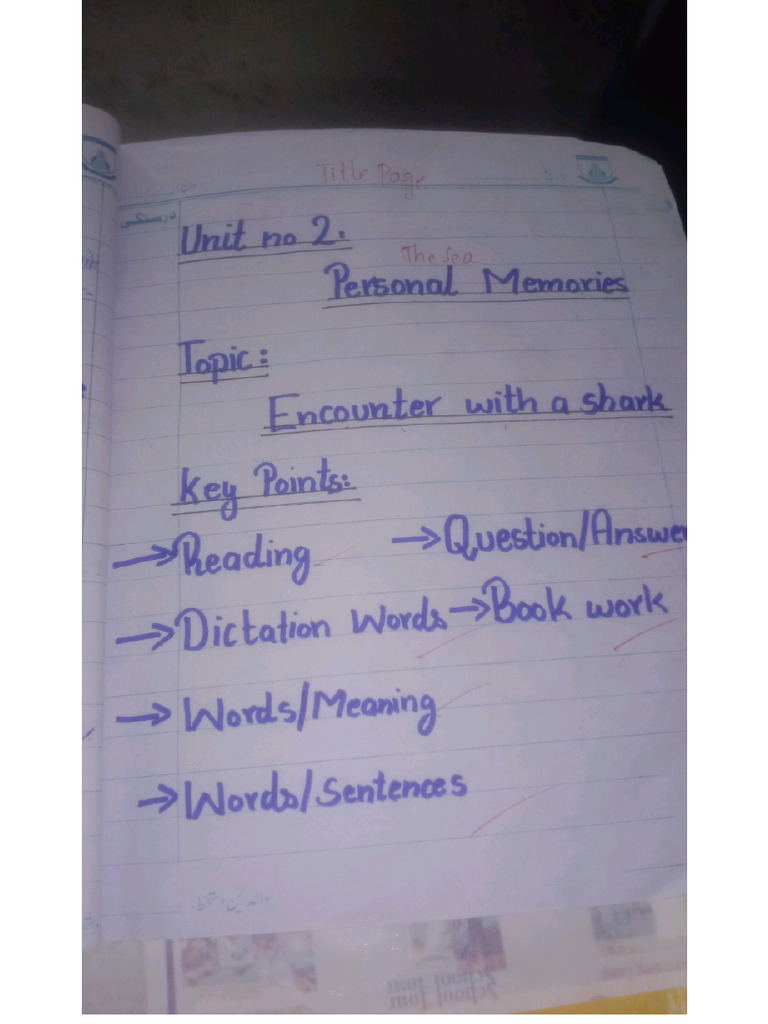 Title Page
درستگی
Unit no 2:
The Sea
Personal Memories
Topic:
Encounter with a shark
Key Points:
→ Reading → Question/Answer
→ Dictation Words → Book work
→ Words/Meaning
→ Words/Sentences
والدین دستخط
School Tour